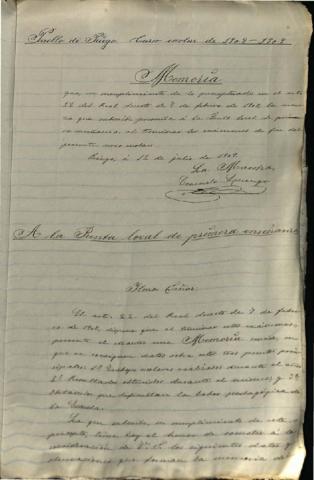 Pueblo de Riego Curso escolar de 1908-1909
Memoria
que, en cumplimiento de lo preceptuado en el art.
22 del Real decreto de 7 de febrero de 1908, la maes
tra que suscribe presenta á la Junta local de prime
ra enseñanza, al terminar los exámenes de fin del
presente curso escolar.
á 12 de julio de 1909.
La Maestra,
Consuelo
A la Junta local de primera enseñanza
Ilmo. Señor:
El art. 22 del Real decreto de 7 de febre
ro de 1908, dispone que al terminar los exámenes
presente el maestro una Memoria en
que se consignen datos sobre estos tres puntos prin
cipales: 1º Trabajos escolares realizados durante el año
2º Resultados obtenidos durante el mismo y 3º
Obstáculos que dificultaron la labor pedagógica de
la Escuela.
La que suscribe, en cumplimiento de este
precepto, tiene hoy el honor de someter á la
consideración de V. I. los siguientes datos y
observaciones que forman la memoria de